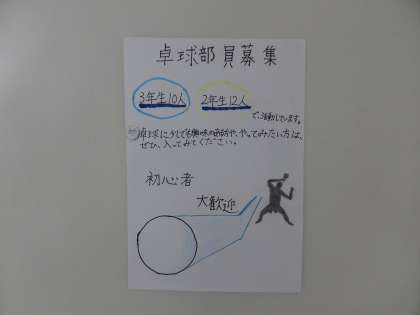 卓球部員募集
3年生10人
2年生12人
で、活動しています。
卓球に少しでも興味のある方や、やってみたい方は、
ぜひ、入ってみてください。
初心者
大歓迎